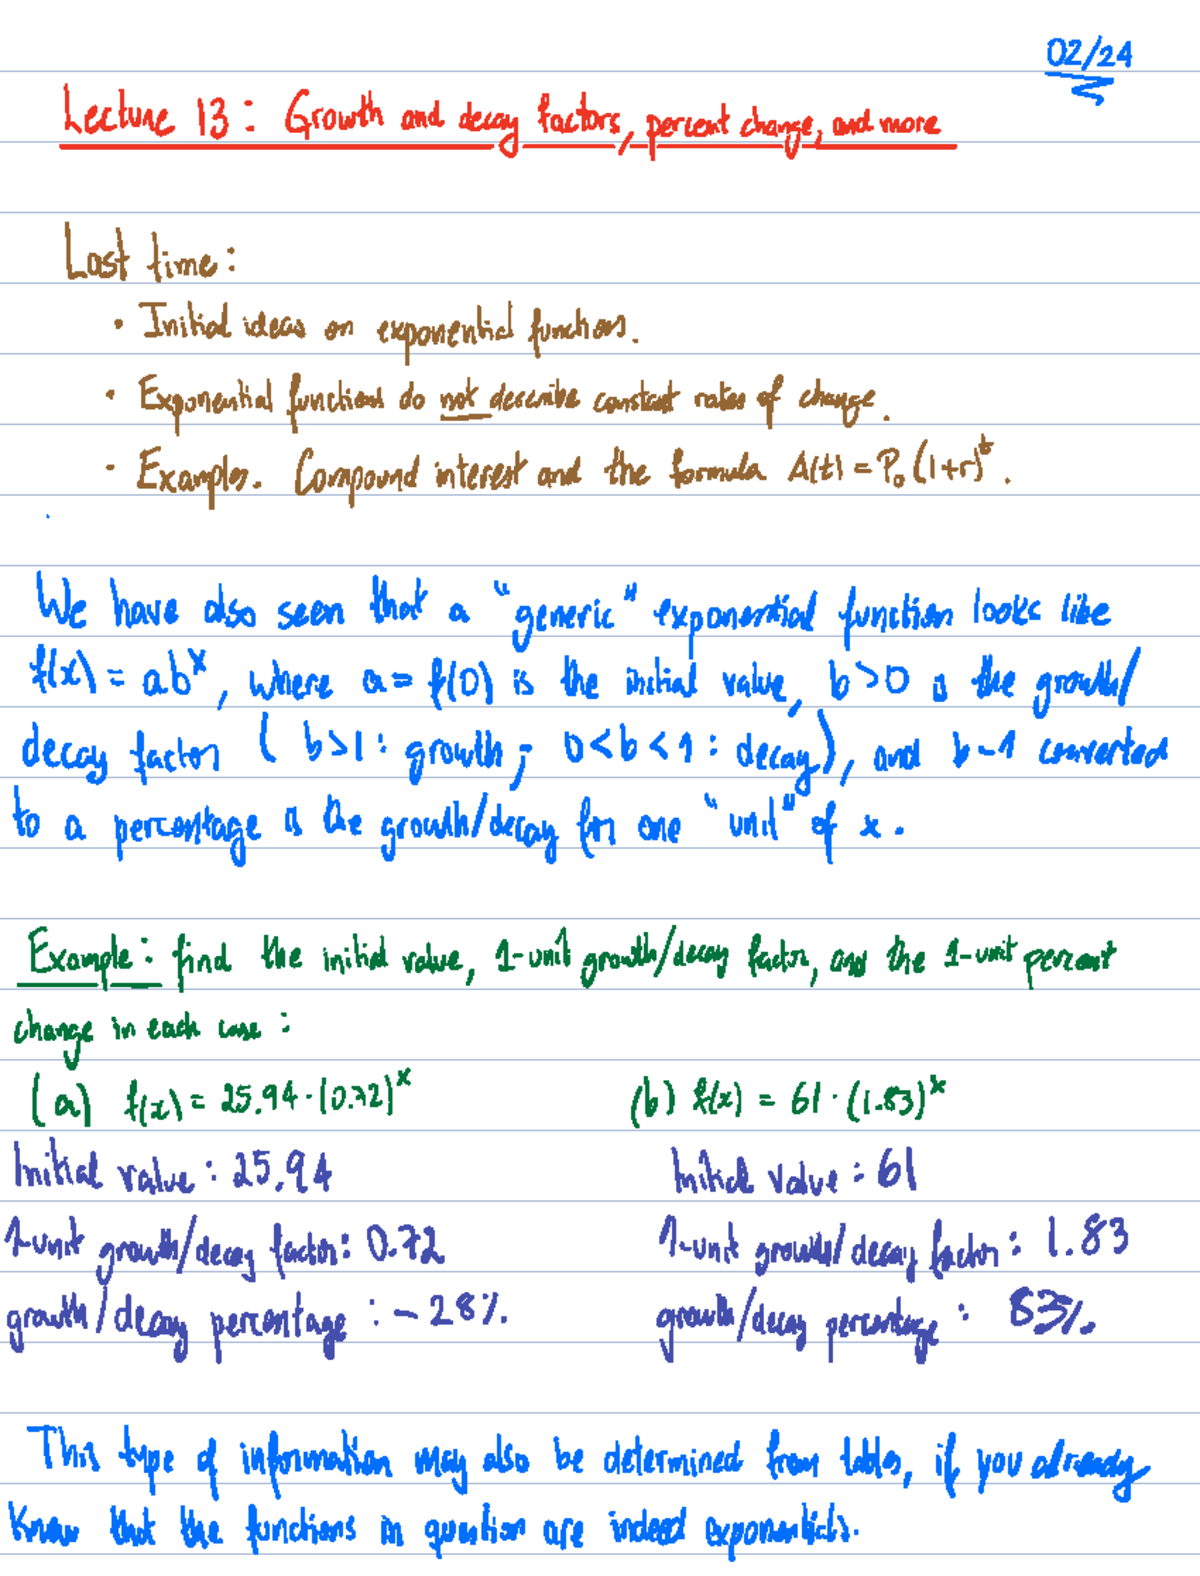 02/24
Lecture 13: Growth and decay factors, percent change, and more
Last time:
• Initial ideas on exponential functions.
• Exponential functions do not describe constant rates of change.
• Examples. Compound interest and the formula A(t) = P₀(1+r)ᵗ.
We have also seen that a "generic" exponential function looks like
f(x) = abˣ, where a = f(0) is the initial value, b>0 is the growth/
decay factor (b>1: growth; 0<b<1: decay), and b-1 converted
to a percentage is the growth/decay for one "unit" of x.
Example: find the initial value, 1-unit growth/decay factor, and the 1-unit percent
change in each case:
(a) f(x) = 25.94·(0.72)ˣ (b) f(x) = 61·(1.83)ˣ
Initial value: 25.94 Initial value: 61
1-unit growth/decay factor: 0.72 1-unit growth/decay factor: 1.83
growth/decay percentage: -28% growth/decay percentage: 83%
This type of information may also be determined from tables, if you already
know that the functions in question are indeed exponentials.